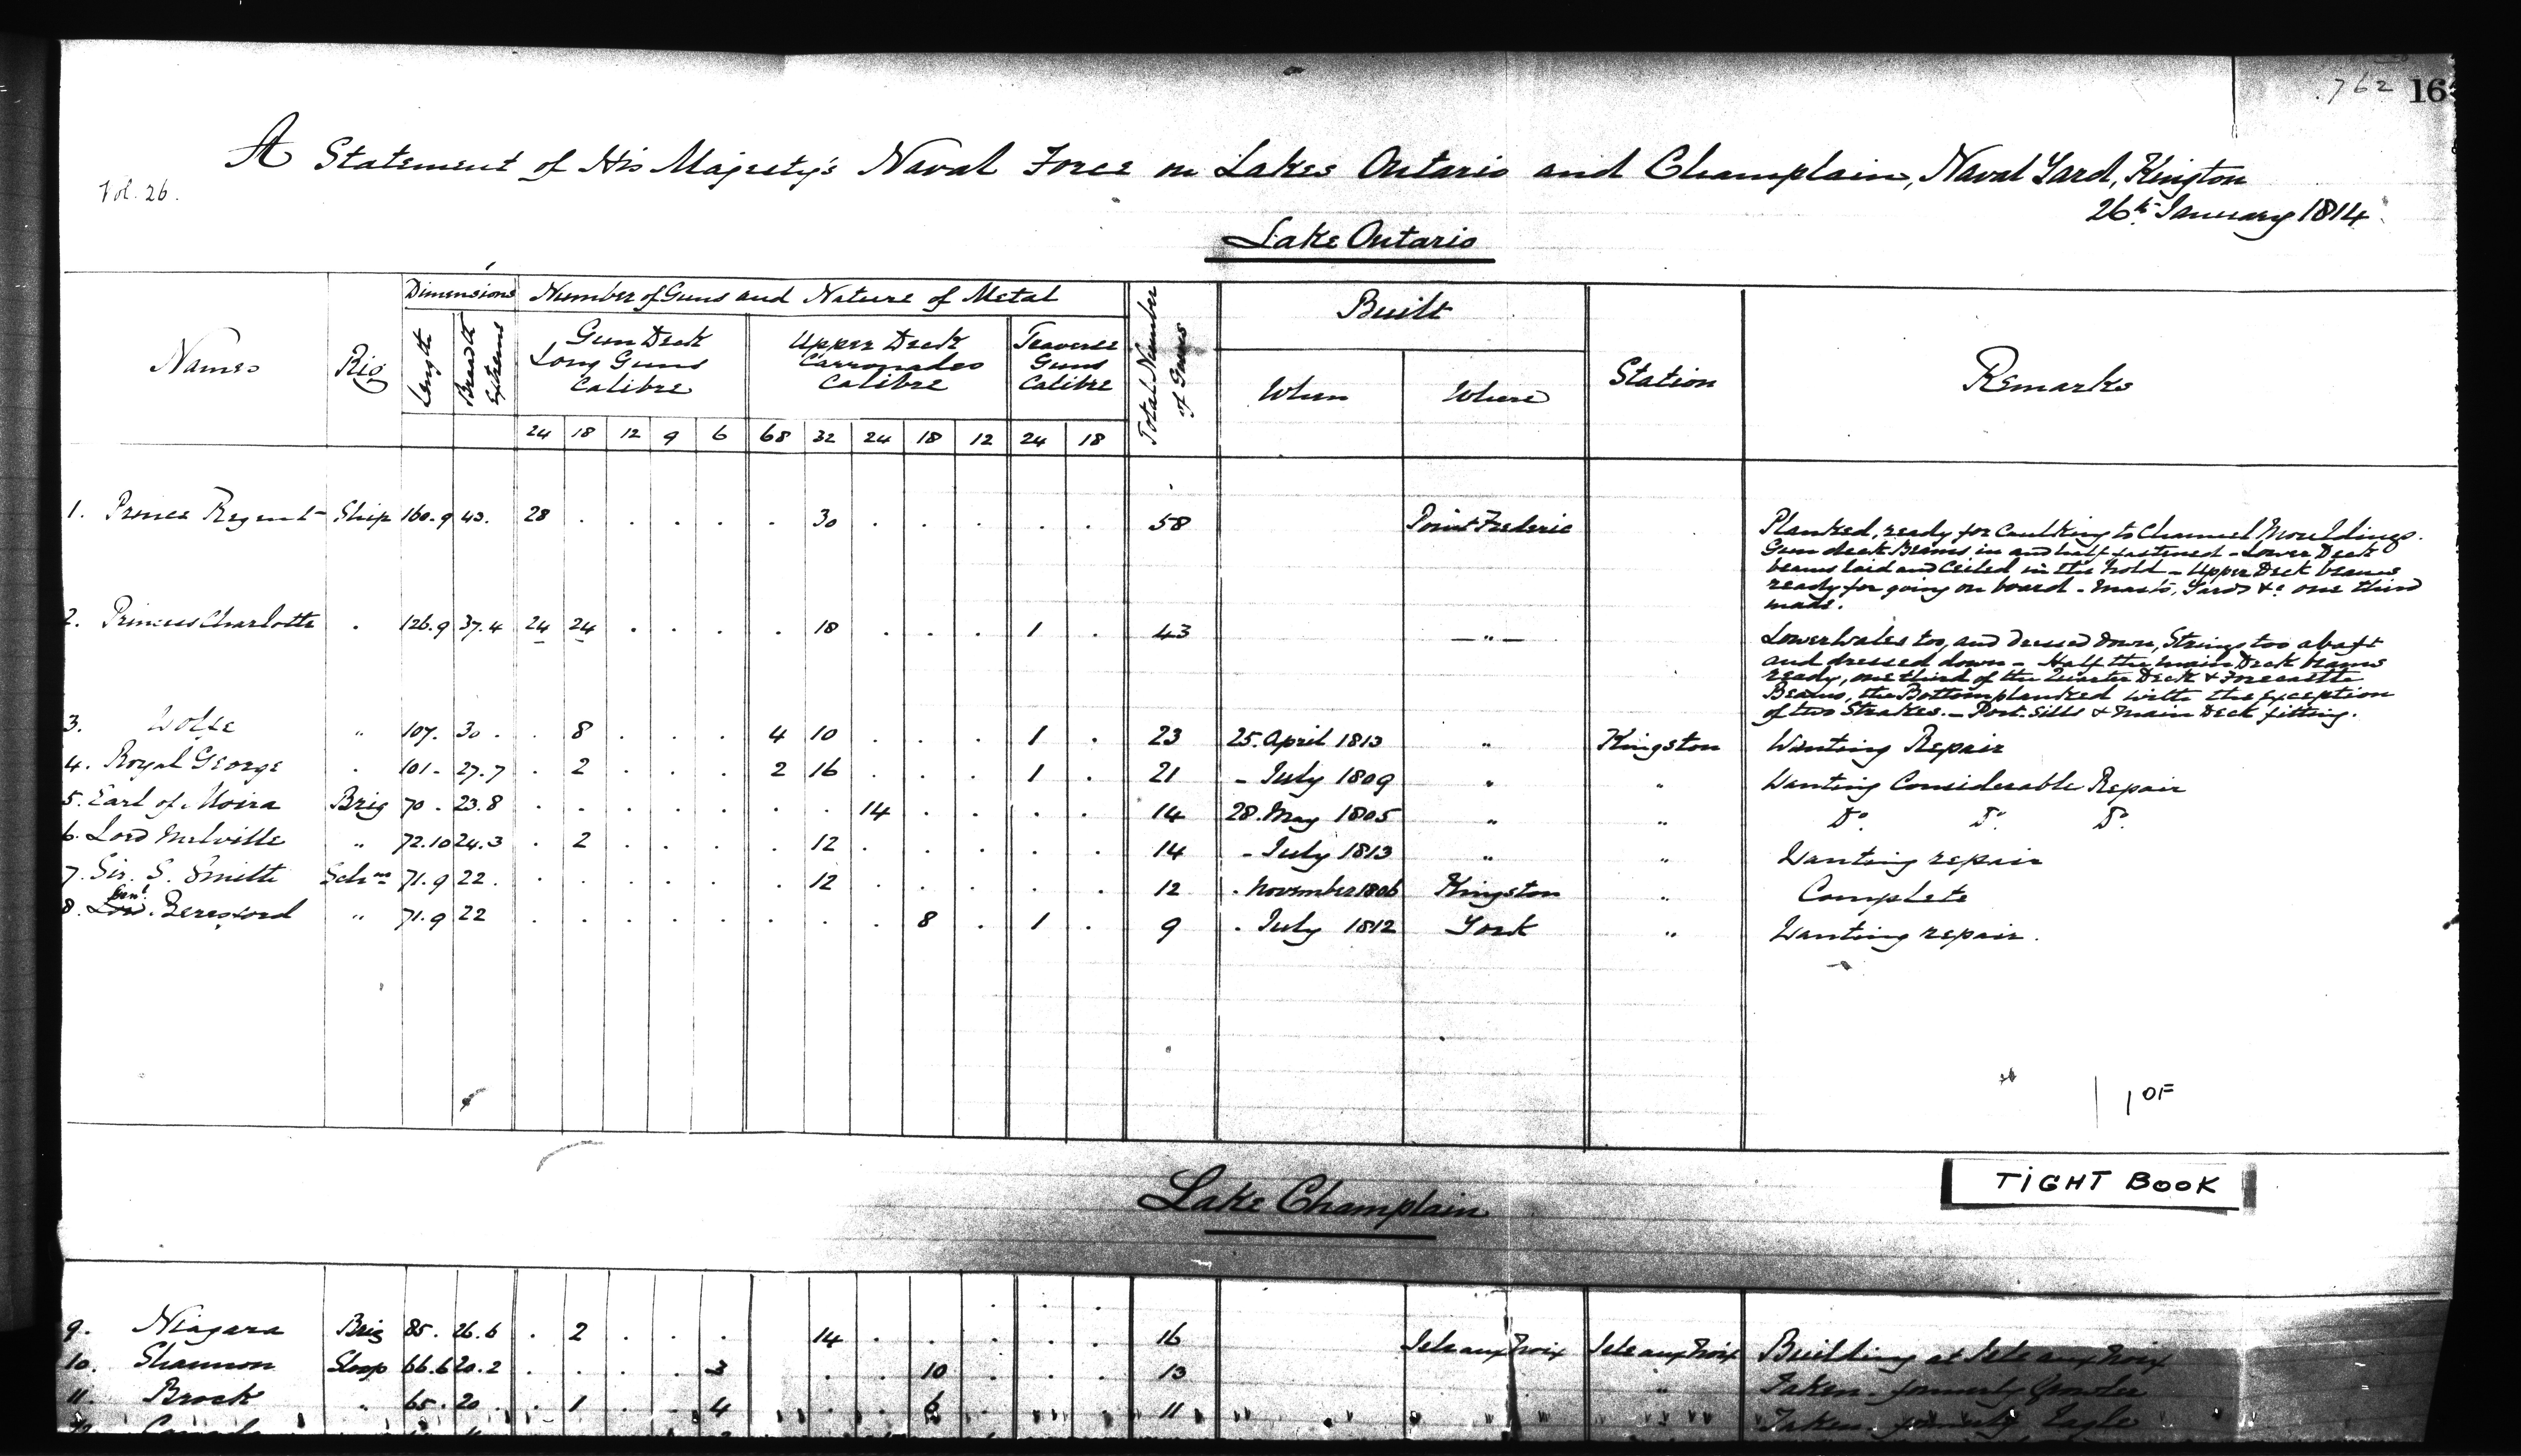 .762 16
A Statement of His Majesty's Naval Force on Lakes Ontario and Champlain, Naval Yard, Kingston
Vol. 26.
26th January 1814
Lake Ontario
Names Rig Dimensions Number of Guns and Nature of Metal Total Number of Guns Built Station Remarks
Length Breadth Extreme Gun Deck Long Guns Calibre Upper Deck Carronades Calibre Traverse Guns Calibre When Where
24 18 12 9 6 68 32 24 18 12 24 18
1. Prince Regent Ship 160.9 43. 28 . . . . . 30 . . . . . 58 Point Frederic Planked, ready for Caulking to Channel Mouldings.
Gun deck Beams in and half fastened - Lower Deck
beams laid and Ceiled in the hold - Upper Deck beams
ready for going on board - Masts, Yards &c one third
made.
2. Princess Charlotte . 126.9 37.4 24 24 . . . . 18 . . . 1 . 43 — " — Lower Wales too, and dressed down, Strings too abaft
and dressed down - Half the main Deck beams
ready, one third of the Quarter Deck & Forecastle
Beams, the Bottom planked with the exception
of two Strakes. - Port Sills & Main Deck fitting.
3. Wolfe " 107. 30 . . 8 . . . 4 10 . . . 1 . 23 25. April 1813 " Kingston Wanting Repair
4. Royal George . 101 - 27.7 . 2 . . . 2 16 . . . 1 . 21 - July 1809 " " Wanting Considerable Repair
5. Earl of Moira Brig 70 . 23.8 . . . . . . . 14 . . . . 14 28. May 1805 " " Do. Do. Do.
6. Lord Melville " 72.10 24.3 . 2 . . . . 12 . . . . . 14 - July 1813 " " Wanting repair
7. Sir. S. Smith Schnr 71.9 22 . . . . . . . 12 . . . . . 12 . November 1806 Kingston " Complete
Genl
8. Lord. Beresford " 71.9 22 . . . . . . . . 8 . 1 . 9 . July 1812 York " Wanting repair.
1 OF
TIGHT BOOK
Lake Champlain
9. Niagara Brig 85. 26.6 . 2 . . . 14 . . . . . 16 Isle aux Noix Isle aux Noix Building at Isle aux Noix
10. Shannon Sloop 66.6 20.2 . . . . 3 . . 10 . . . 13 " Taken - formerly Growler
11. Brock " 65. 20 . . 1 . . 4 . . 6 . . . 11 Taken. formerly Eagle